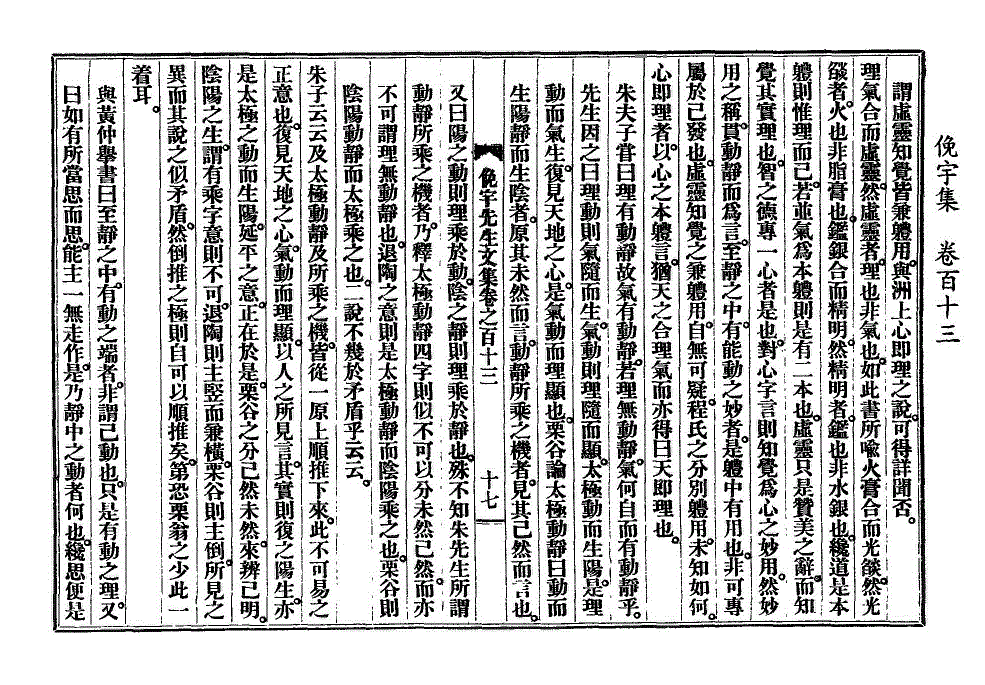 俛宇集　卷百十三
謂虛靈知覺皆兼體用。與洲上心卽理之說。可得詳聞否。
理氣合而虛靈。然虛靈者。理也非氣也。如此書所喩火膏合而光燄。然光
燄者。火也非脂膏也。鑑銀合而精明。然精明者。鑑也非水銀也。纔道是本
軆則惟理而已。若並氣爲本軆則是有二本也。虛靈只是贊美之辭。而知
覺其實理也。智之德專一心者是也。對心字言則知覺爲心之妙用。然妙
用之稱。貫動靜而爲言。至靜之中。有能動之妙者。是軆中有用也。非可專
屬於已發也。虛靈知覺之兼軆用。自無可疑。程氏之分別軆用。未知如何。
心卽理者。以心之本軆言。猶天之合理氣而亦得曰天卽理也。
朱夫子甞曰理有動靜故氣有動靜。若理無動靜。氣何自而有動靜乎。
先生因之曰理動則氣隨而生。氣動則理隨而顯。太極動而生陽。是理
動而氣生。復見天地之心。是氣動而理顯也。栗谷論太極動靜曰動而
生陽靜而生陰者。原其未然而言。動靜所乘之機者。見其已然而言也。
俛宇先生文集卷之百十三　十七
又曰陽之動則理乘於動。陰之靜則理乘於靜也。殊不知朱先生所謂
動靜所乘之機者。乃釋太極動靜四字則似不可以分未然已然。而亦
不可謂理無動靜也。退陶之意則是太極動靜而陰陽乘之也。栗谷則
陰陽動靜而太極乘之也。二說不幾於矛盾乎云云。
朱子云云及太極動靜及所乘之機。皆從一原上順推下來。此不可易之
正意也。復見天地之心。氣動而理顯。以人之所見言。其實則復之陽生。亦
是太極之動而生陽。延平之意。正在於是。栗谷之分已然未然。來辨已明。
陰陽之生。謂有乘字意則不可。退陶則主竪而兼橫。栗谷則主倒。所見之
異而其說之似矛盾。然倒推之極則自可以順推矣。第恐栗翁之少此一
着耳。
與黃仲擧書曰至靜之中。有動之端者。非謂已動也。只是有動之理。又
曰如有所當思而思。能主一無走作。是乃靜中之動者何也。纔思便是